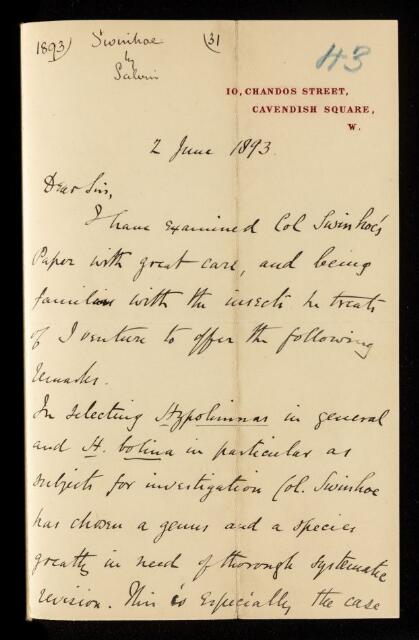 1893)
Swinhoe
by
Salvin
(31
43
10, CHANDOS STREET,
CAVENDISH SQUARE,
W.
2 June 1893.
Dear Sir,
I have examined Col Swinhoe's
Paper with great care, and being
familiar with the insects he treats
of I venture to offer the following
remarks.
In selecting Hypolimnas in general
and H. bolina in particular as
subjects for investigation Col. Swinhoe
has chosen a genus and a species
greatly in need of thorough systematic
revision. This is especially the case